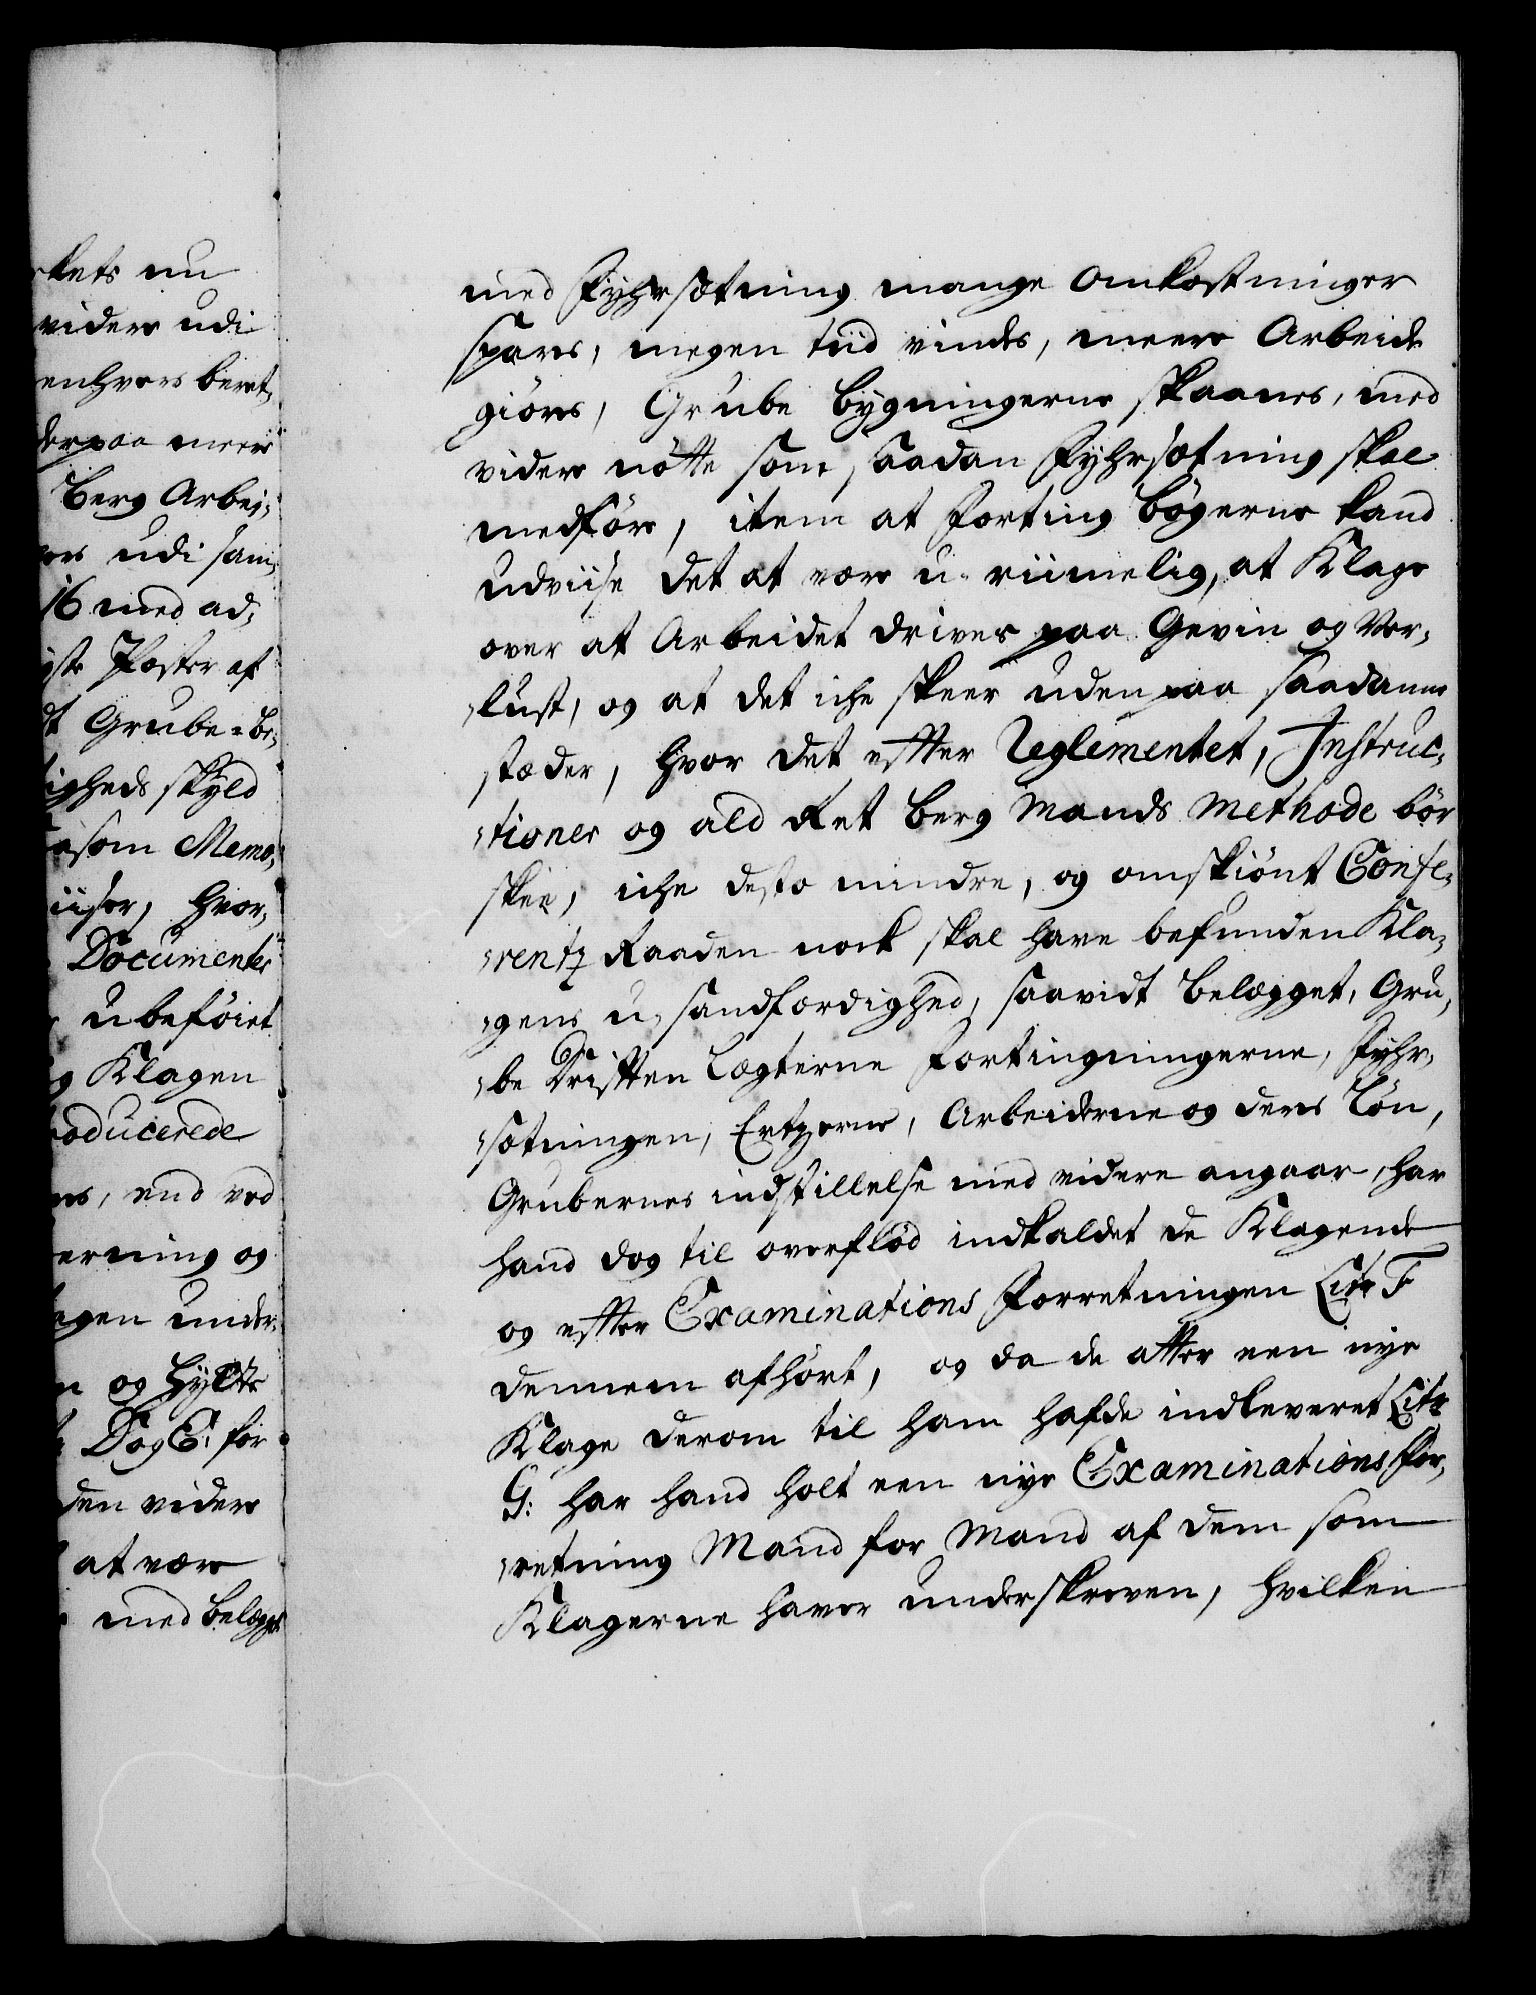 kets nu
videre udi
enhvers beret-
derpaa meere
Berg Arbei-
udi sam-
16 med ad-
Poster af
Grube-be-
igheds skyld
som Memo-
iiser, hvor-
Documenter
ubeføiet
Klagen
oducerede
end ved
erning og
agen under-
og Hylte
D og E: for
den videre
at være
med belægget
med Fyhrsætning mange Omkostninger
spares, megen tiid vindes, meere Arbeide
giöres, Grube bygningerne skaanes, med
videre nötte som saadan Fyhrsætning skal
medföre, item at Forting bögerne kand
udviise det at være u-riimelig, at Klage
over at Arbeidet drives paa Gevin og Ver-
lust, og at det iche skeer uden paa saadanne
stæder, hvor det effter Reglementet, Instruc-
tioner og ald Ret Berg Mands Methode bör
skee, iche desto mindre, og omskiönt Confe-
rentz Raaden nock skal have befunden Kla-
gens u-sandfærdighed, saavidt belægget, Gru-
be Drifften Lægterne Fortingningerne, Fyhr-
sætningen, Ertzerne, Arbeiderne og deres Lön,
Grubernes indstillelse med videre angaar, har
hand dog til overflöd indkaldet de Klagende
og effter Examinations Forretningen Litr F
dennem afhört, og da de atter een nye
Klage derom til ham hafde indleveret Litr
G: har hand holt een nye Examinations For-
retning Mand for Mand af dem som
Klagerne haver underskreven, hvilken